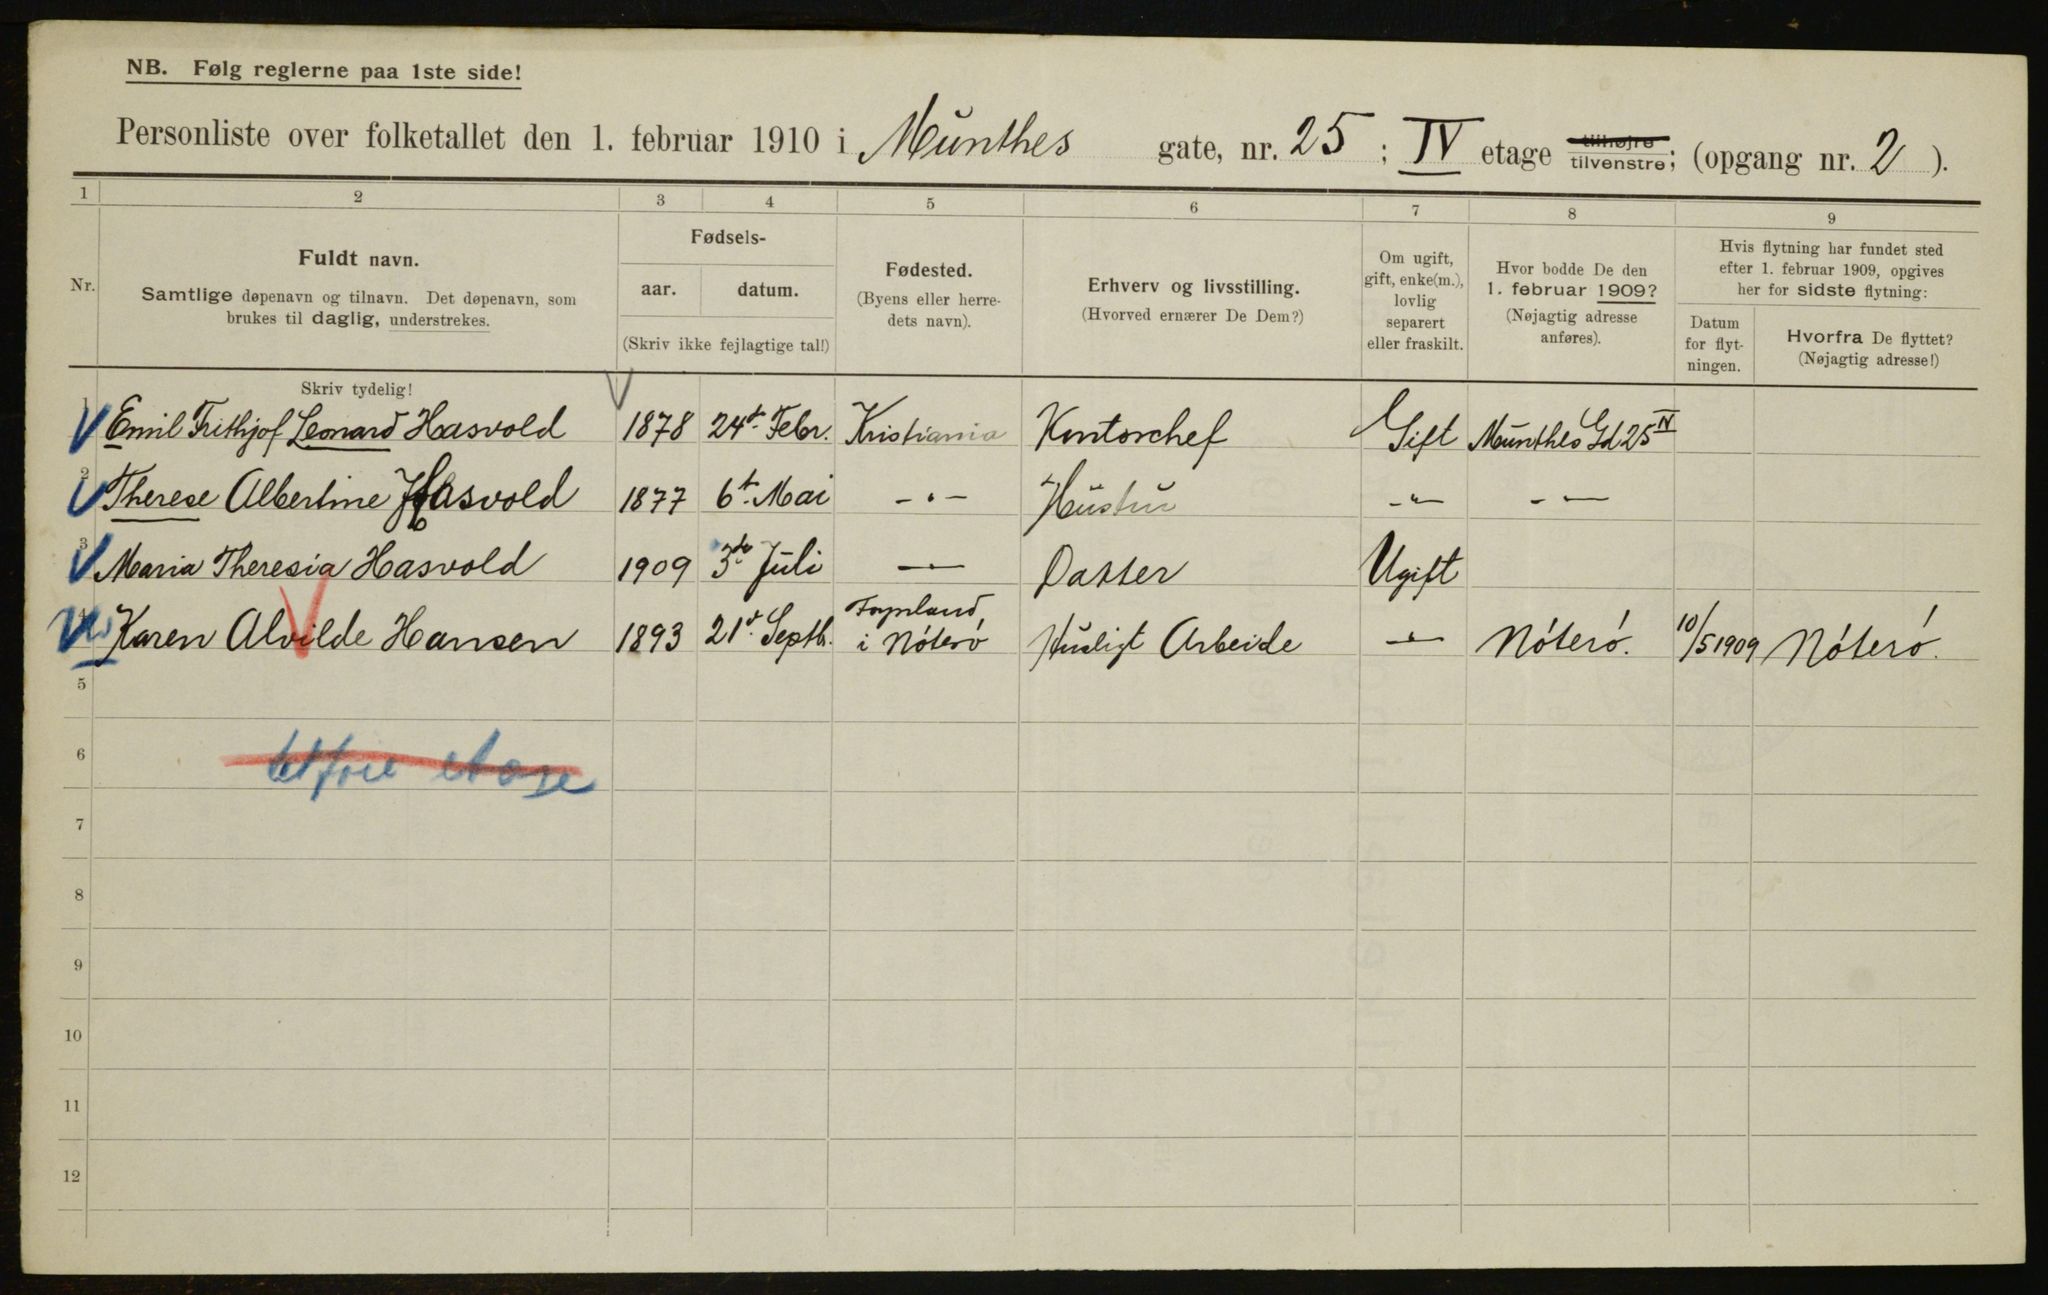 NB. Følg reglerne paa 1ste side!
Personliste over folketallet den 1. februar 1910 i Munthes gate, nr. 25 ; IV etage tilhøjre tilvenstre; (opgang nr. 2 ).
1 2 3 4 5 6 7 8 9
Nr.
Fuldt navn.
Samtlige døpenavn og tilnavn. Det døpenavn, som
brukes til daglig, understrekes.
Fødsels-
aar. datum.
(Skriv ikke fejlagtige tal!)
Fødested.
(Byens eller herre-
dets navn).
Erhverv og livsstilling.
(Hvorved ernærer De Dem?)
Om ugift,
gift, enke(m.),
lovlig
separert
eller fraskilt.
Hvor bodde De den
1. februar 1909?
(Nøjagtig adresse
anføres).
Hvis flytning har fundet sted
efter 1. februar 1909, opgives
her for sidste flytning:
Datum
for flyt-
ningen.
Hvorfra De flyttet?
(Nøjagtig adresse!)
Skriv tydelig!
1 Emil Frithjof Leonard Hasvold 1878 24de Febr. Kristiania Kontorchef Gift Munthes Gd 25 IV
2 Therese Albertine Hasvold 1877 6t. Mai - " - Hustru - " - - " -
3 Maria Theresia Hasvold 1909 3de Juli - " - Datter Ugift
4 Karen Alvilde Hansen 1893 21de Septb. Føynland i Nöterö Husligt Arbeide - " - Nöterö. 10/5 1909 Nöterö.
5
6 etage
7
8
9
10
11
12